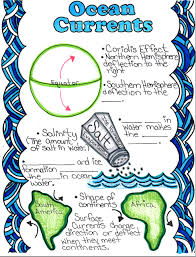 Ocean
Currents
• Coriolis Effect
• Northern Hemisphere
deflection to the
right
• Southern Hemisphere
deflection to the
Equator
• Salinity
The amount
of salt in water.
Salt
in
water makes
the
and ice
formation
in
water.
• Shape of
continents
South
America
Africa
Surface
Currents change
direction or deflect
when they meet
continents.